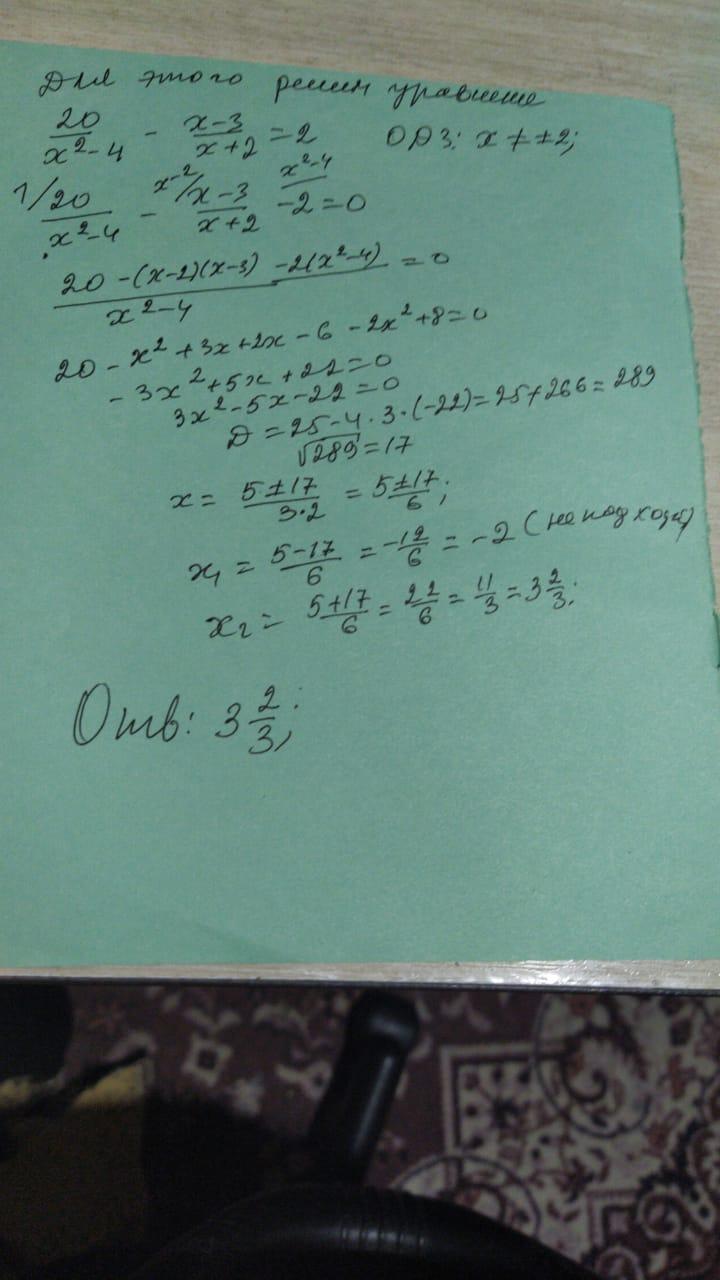 Для этого решим уравнение
20/(x²-4) - (x-3)/(x+2) = 2 ОДЗ: x ≠ ±2;
1/ 20/(x²-4) - x-2/ (x-3)/(x+2) x²-4/ -2 = 0
(20 -(x-2)(x-3) -2(x²-4))/(x²-4) = 0
20 - x² + 3x + 2x - 6 - 2x² + 8 = 0
- 3x² + 5x + 22 = 0
3x² - 5x - 22 = 0
D = 25 - 4 · 3 · (-22) = 25 + 266 = 289
√289 = 17
x = (5 ± 17)/(3·2) = (5 ± 17)/6;
x₁ = (5-17)/6 = -12/6 = -2 (не подходит)
x₂ = (5+17)/6 = 22/6 = 11/3 = 3 2/3;
Отв: 3 2/3;